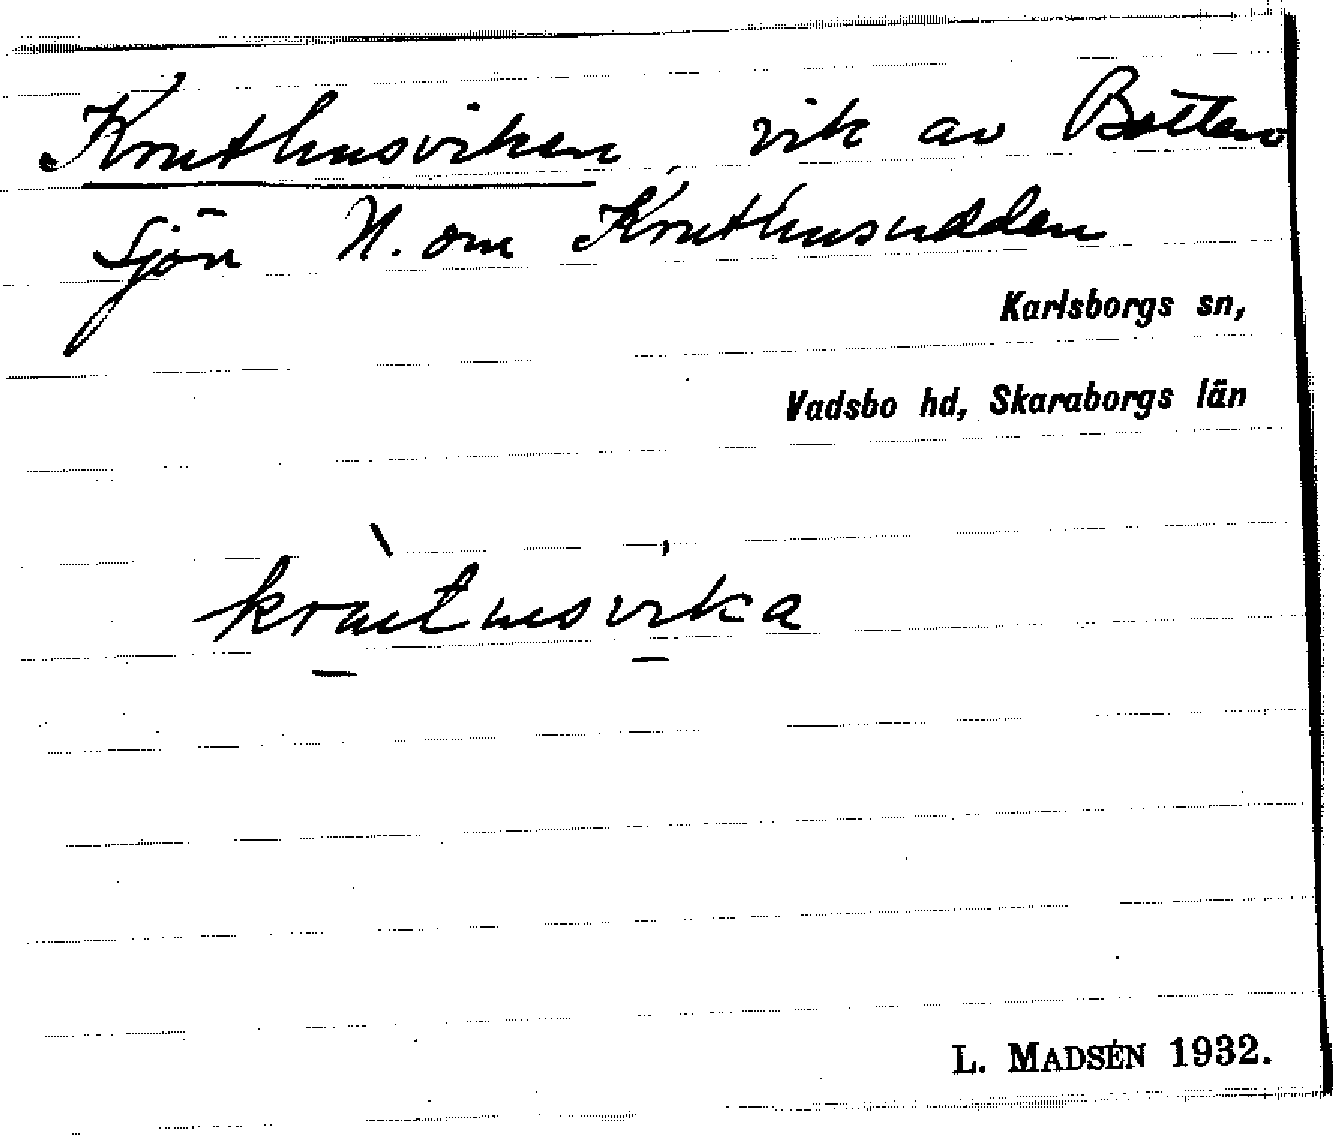 Kruthusviken, vik av Botten
sjön N. om Kruthusudden
Karlsborgs sn,
Vadsbo hd, Skaraborgs län
krùtusvika
L. MADSÉN 1932.